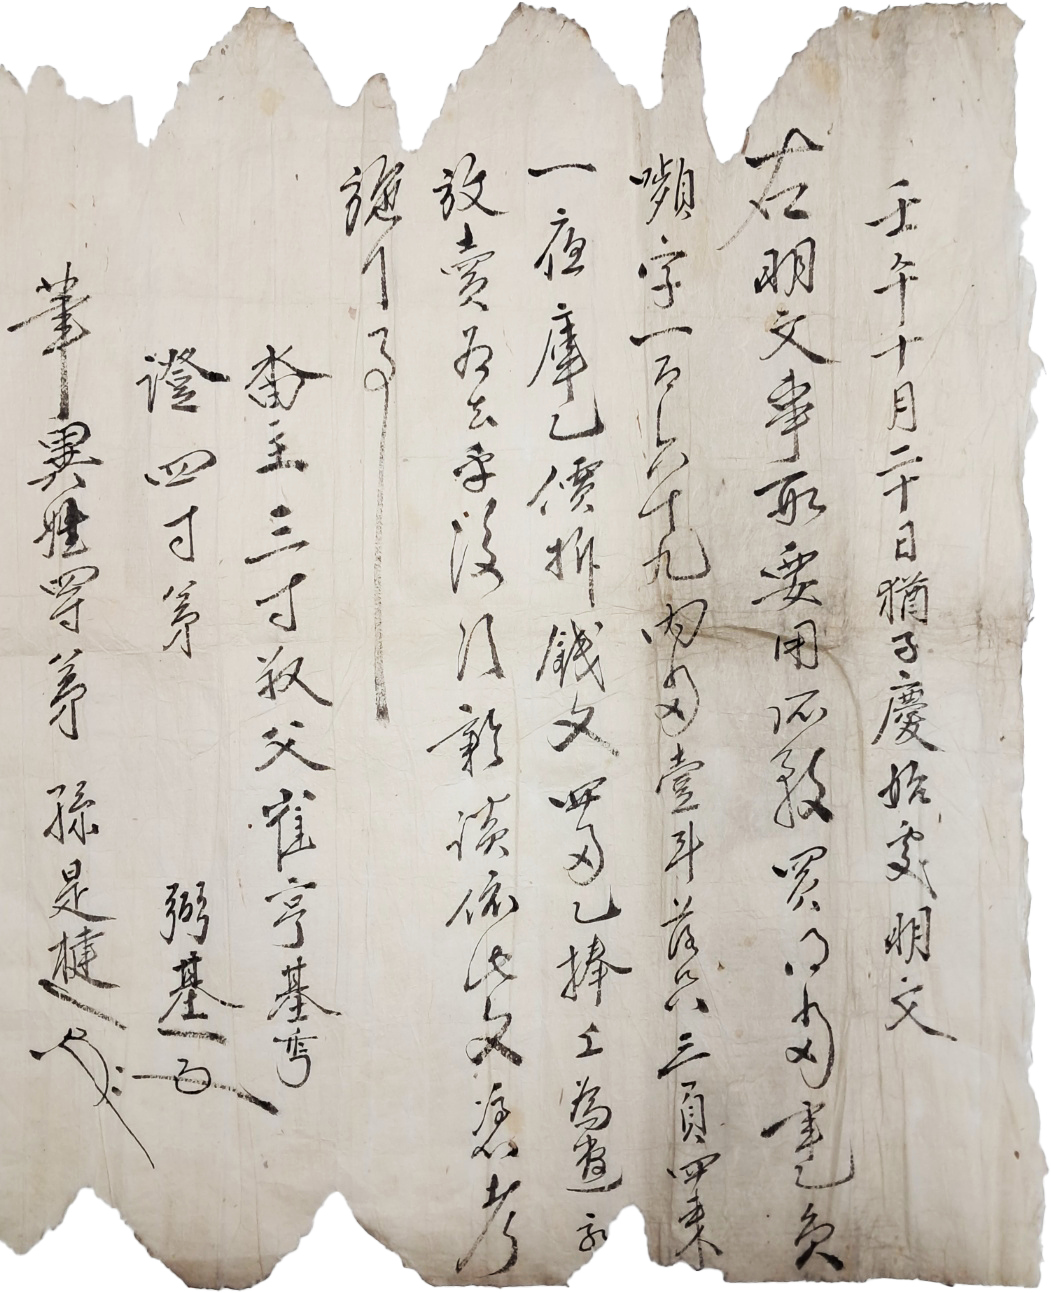 壬午十月二十日猶子慶始處明文
右明文事段要用所致買得畓庫乙負
嚬字一百六十九內畓壹斗落只三負四束
一庫乙價折錢文四兩乙捧上爲遣永
放賣爲去乎後次雜談依此文憑考
施行事
畓主三寸叔父崔亨基
證四寸弟 弼基
筆異姓四寸弟 孫是楗